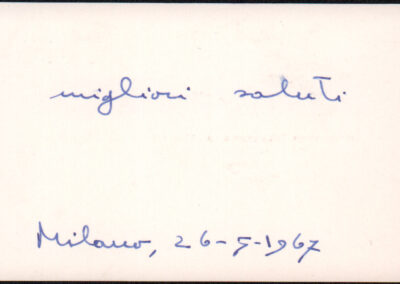 migliori saluti
Milano, 26-5-1967